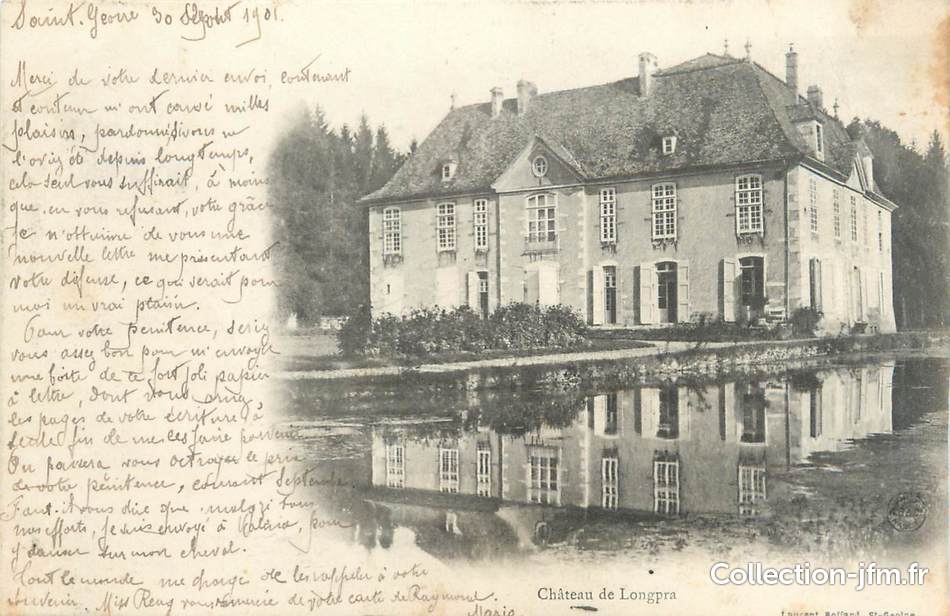 Saint-Geoire 30 Août 1901.
Merci de votre dernier envoi, contenant
et contenu m'ont causé milles
plaisirs, pardonnez vous
depuis longtemps,
cela seul vous suffirait, à moins
que, en vous refusant, votre grâce
je n'obtienne de vous une
nouvelle lettre me présentant
votre défense, ce qui serait pour
moi un vrai plaisir.
Pour votre pénitence, serez
vous assez bon pour m'envoyer
une boîte de ce fort joli papier
à lettre, dont vous
les pages de votre écriture à
fin de me les faire
On passera vous octroyer le prix
de votre pénitence, courant Septembre.
Faut-il vous dire que, malgré tous
nos efforts, je suis envoyé à Valence, pour
y danser sur mon cheval.
Tout le monde me charge de les rappeler à votre
souvenir, Miss vous remercie de votre carte de Raymond.
Marie
Château de Longpra
Collection-jfm.fr
Laurent Rolland, St-Geoire